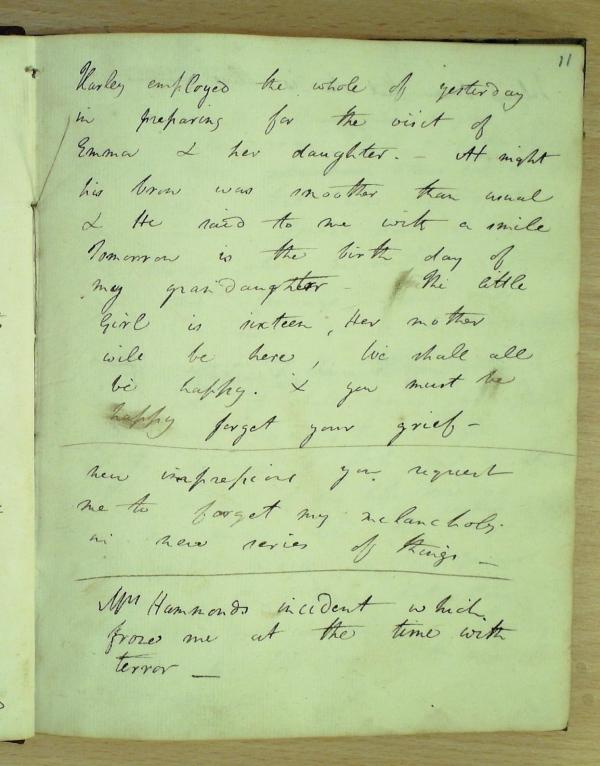 11
Harley employed the whole of yesterday
in preparing for the visit of
Emma & her daughter. – At night
his brow was smoother than usual
& He said to me with a smile
Tomorrow is the birth day of
my grandaughter – The little
Girl is sixteen, Her mother
will be here, We shall all
be happy. & you must be
happy forget your grief –
new impressions you request
me to forget my melancholy
in new series of things –
Mrs Hammonds incident which
froze me at the time with
terror –